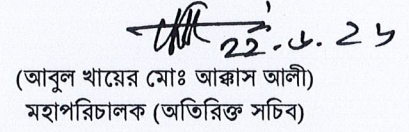 22.6.25
(আবুল খায়ের মোঃ আক্কাস আলী)
মহাপরিচালক (অতিরিক্ত সচিব)